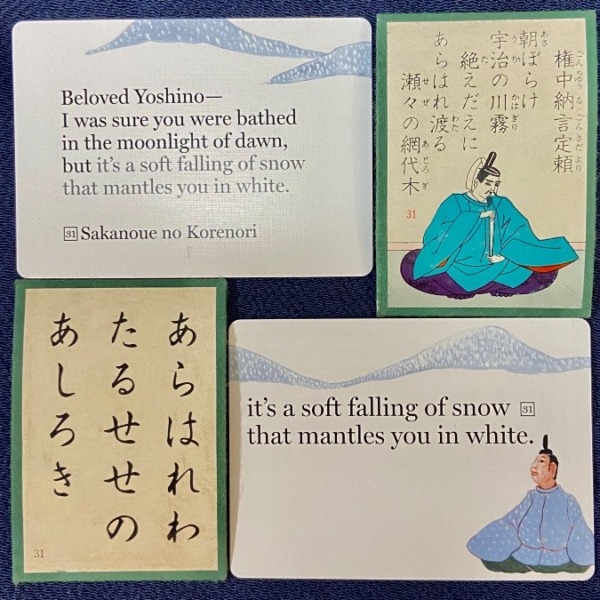 Beloved Yoshino—
I was sure you were bathed
in the moonlight of dawn,
but it's a soft falling of snow
that mantles you in white.
31 Sakanoue no Korenori
権中納言定頼
ごんちゆうなごんさだより
朝ぼらけ
あさ
宇治の川霧
うぢ かはぎり
絶えだえに
た
あらはれ渡る
わた
瀬々の網代木
せぜ あじろぎ
31
あらはれわ
たるせせの
あしろき
31
it's a soft falling of snow 31
that mantles you in white.